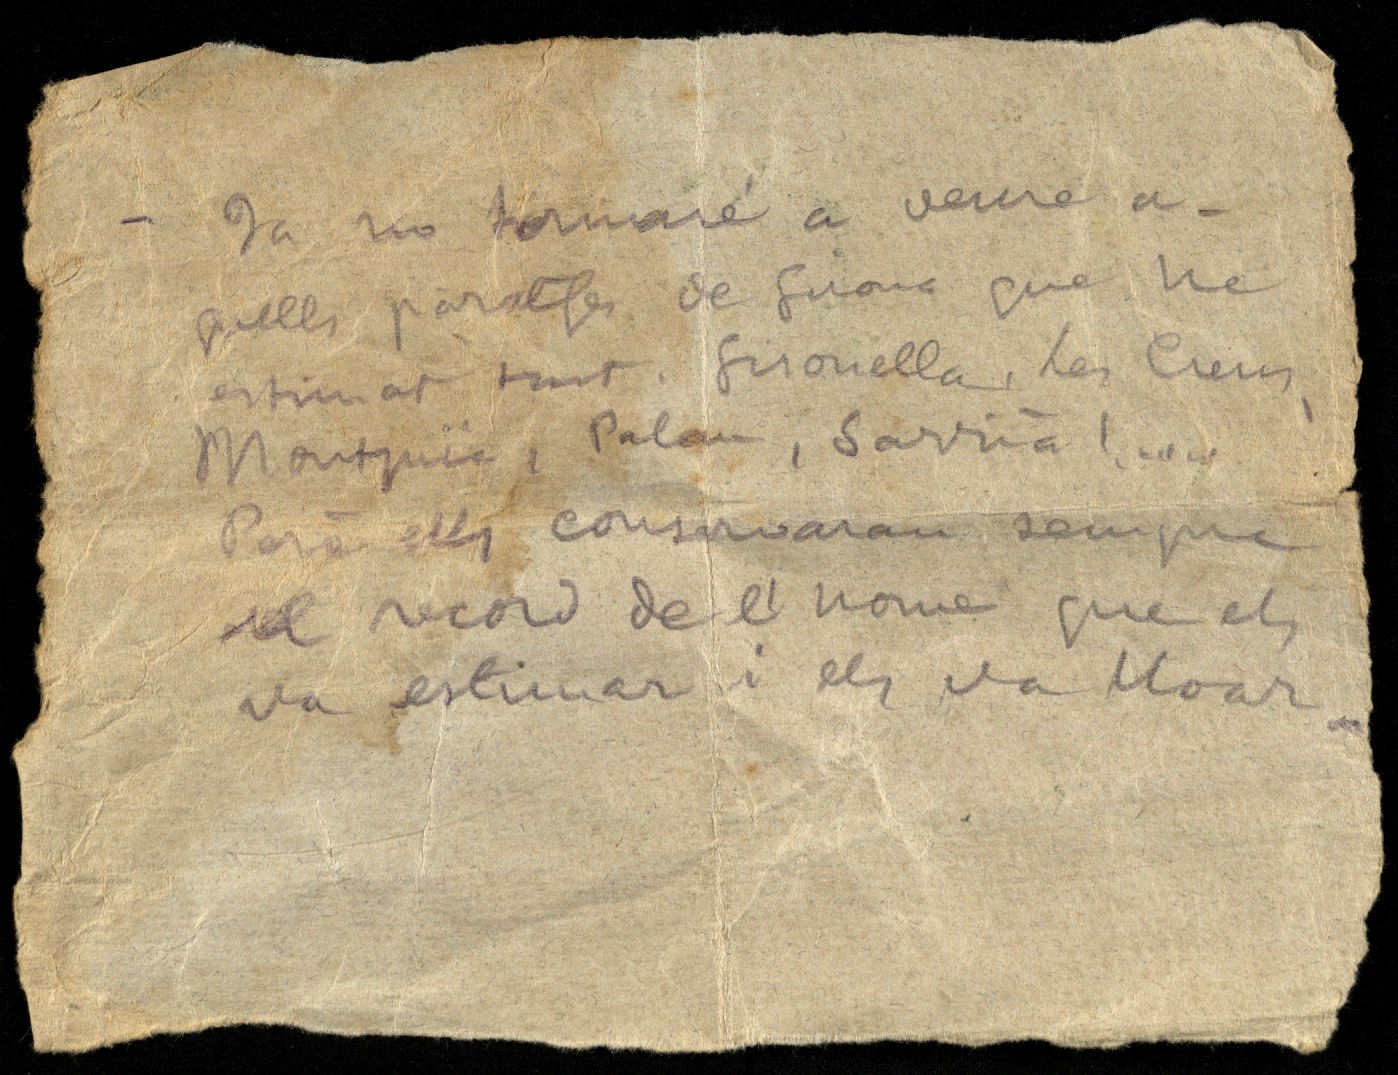 - Ja no tornaré a veure a-
quells paratges de Girona que he
estimat tant. Gironella, Les Creus,
Montjuïc, Palau, Sarrià!....
Però ells conservaran sempre
el record de l'home que els
va estimar i els va lloar.